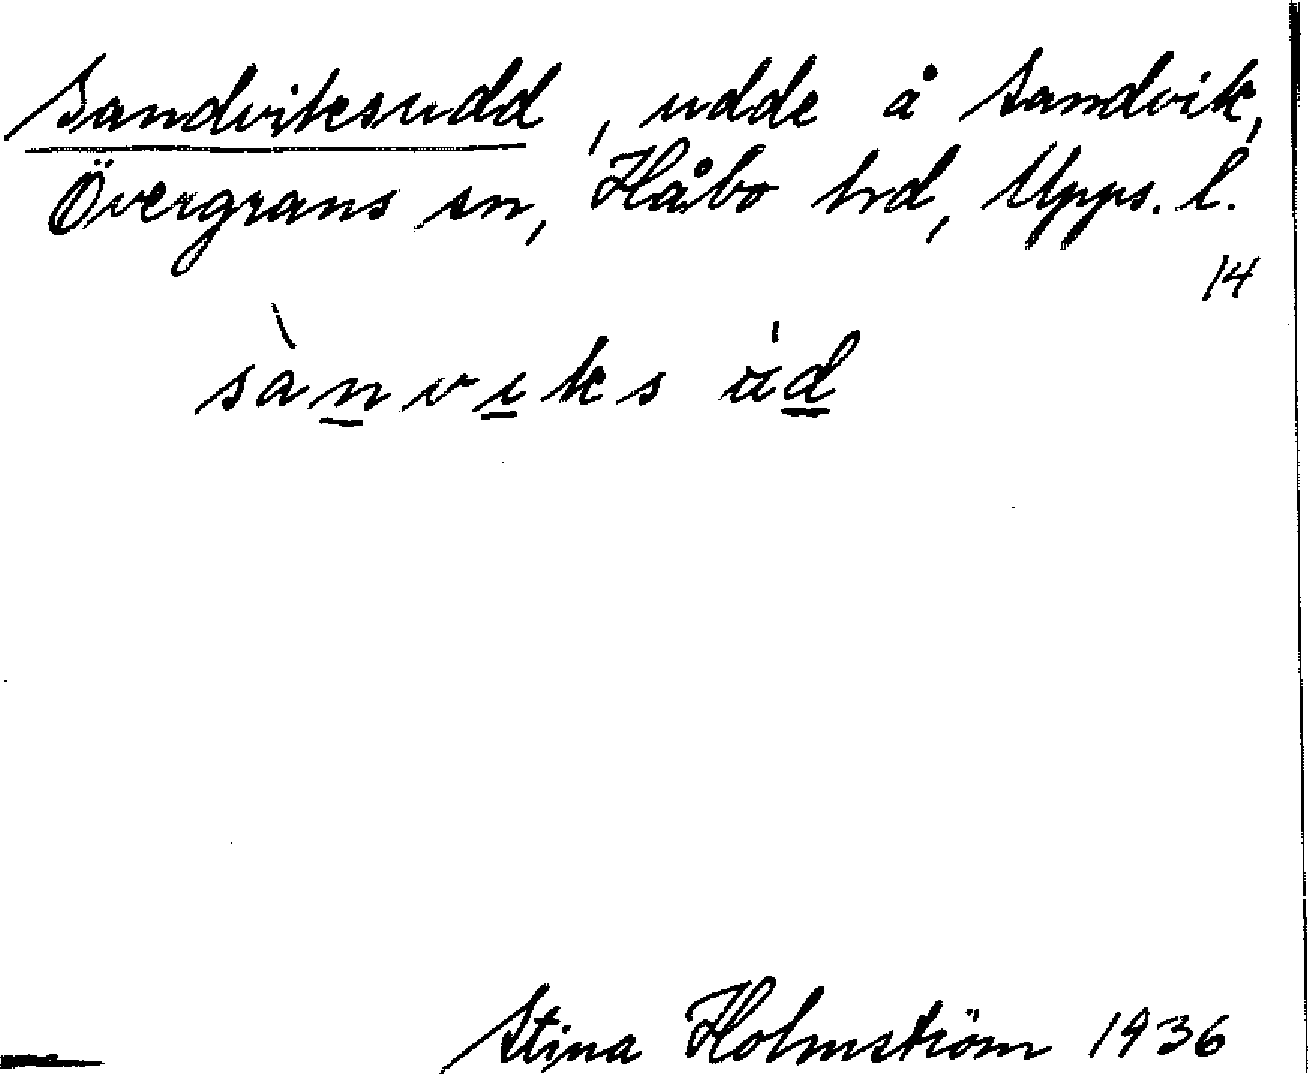 Sandviksudd, udde å Sandvik,
Övergrans sn, Håbo hd, Upps. l.
14
sànviks úd
Stina Holmström 1936